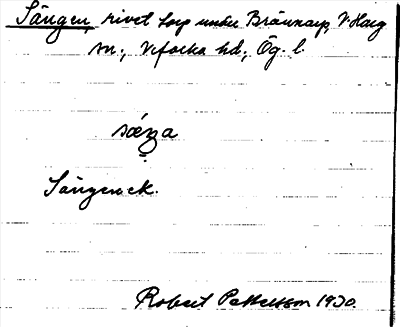 Sången, rivet torp under Brånnarp, V Harg
sn., Vifolka hd., Ög. l.
sæŋa
Sången ek.
Robert Pettersson 1930.